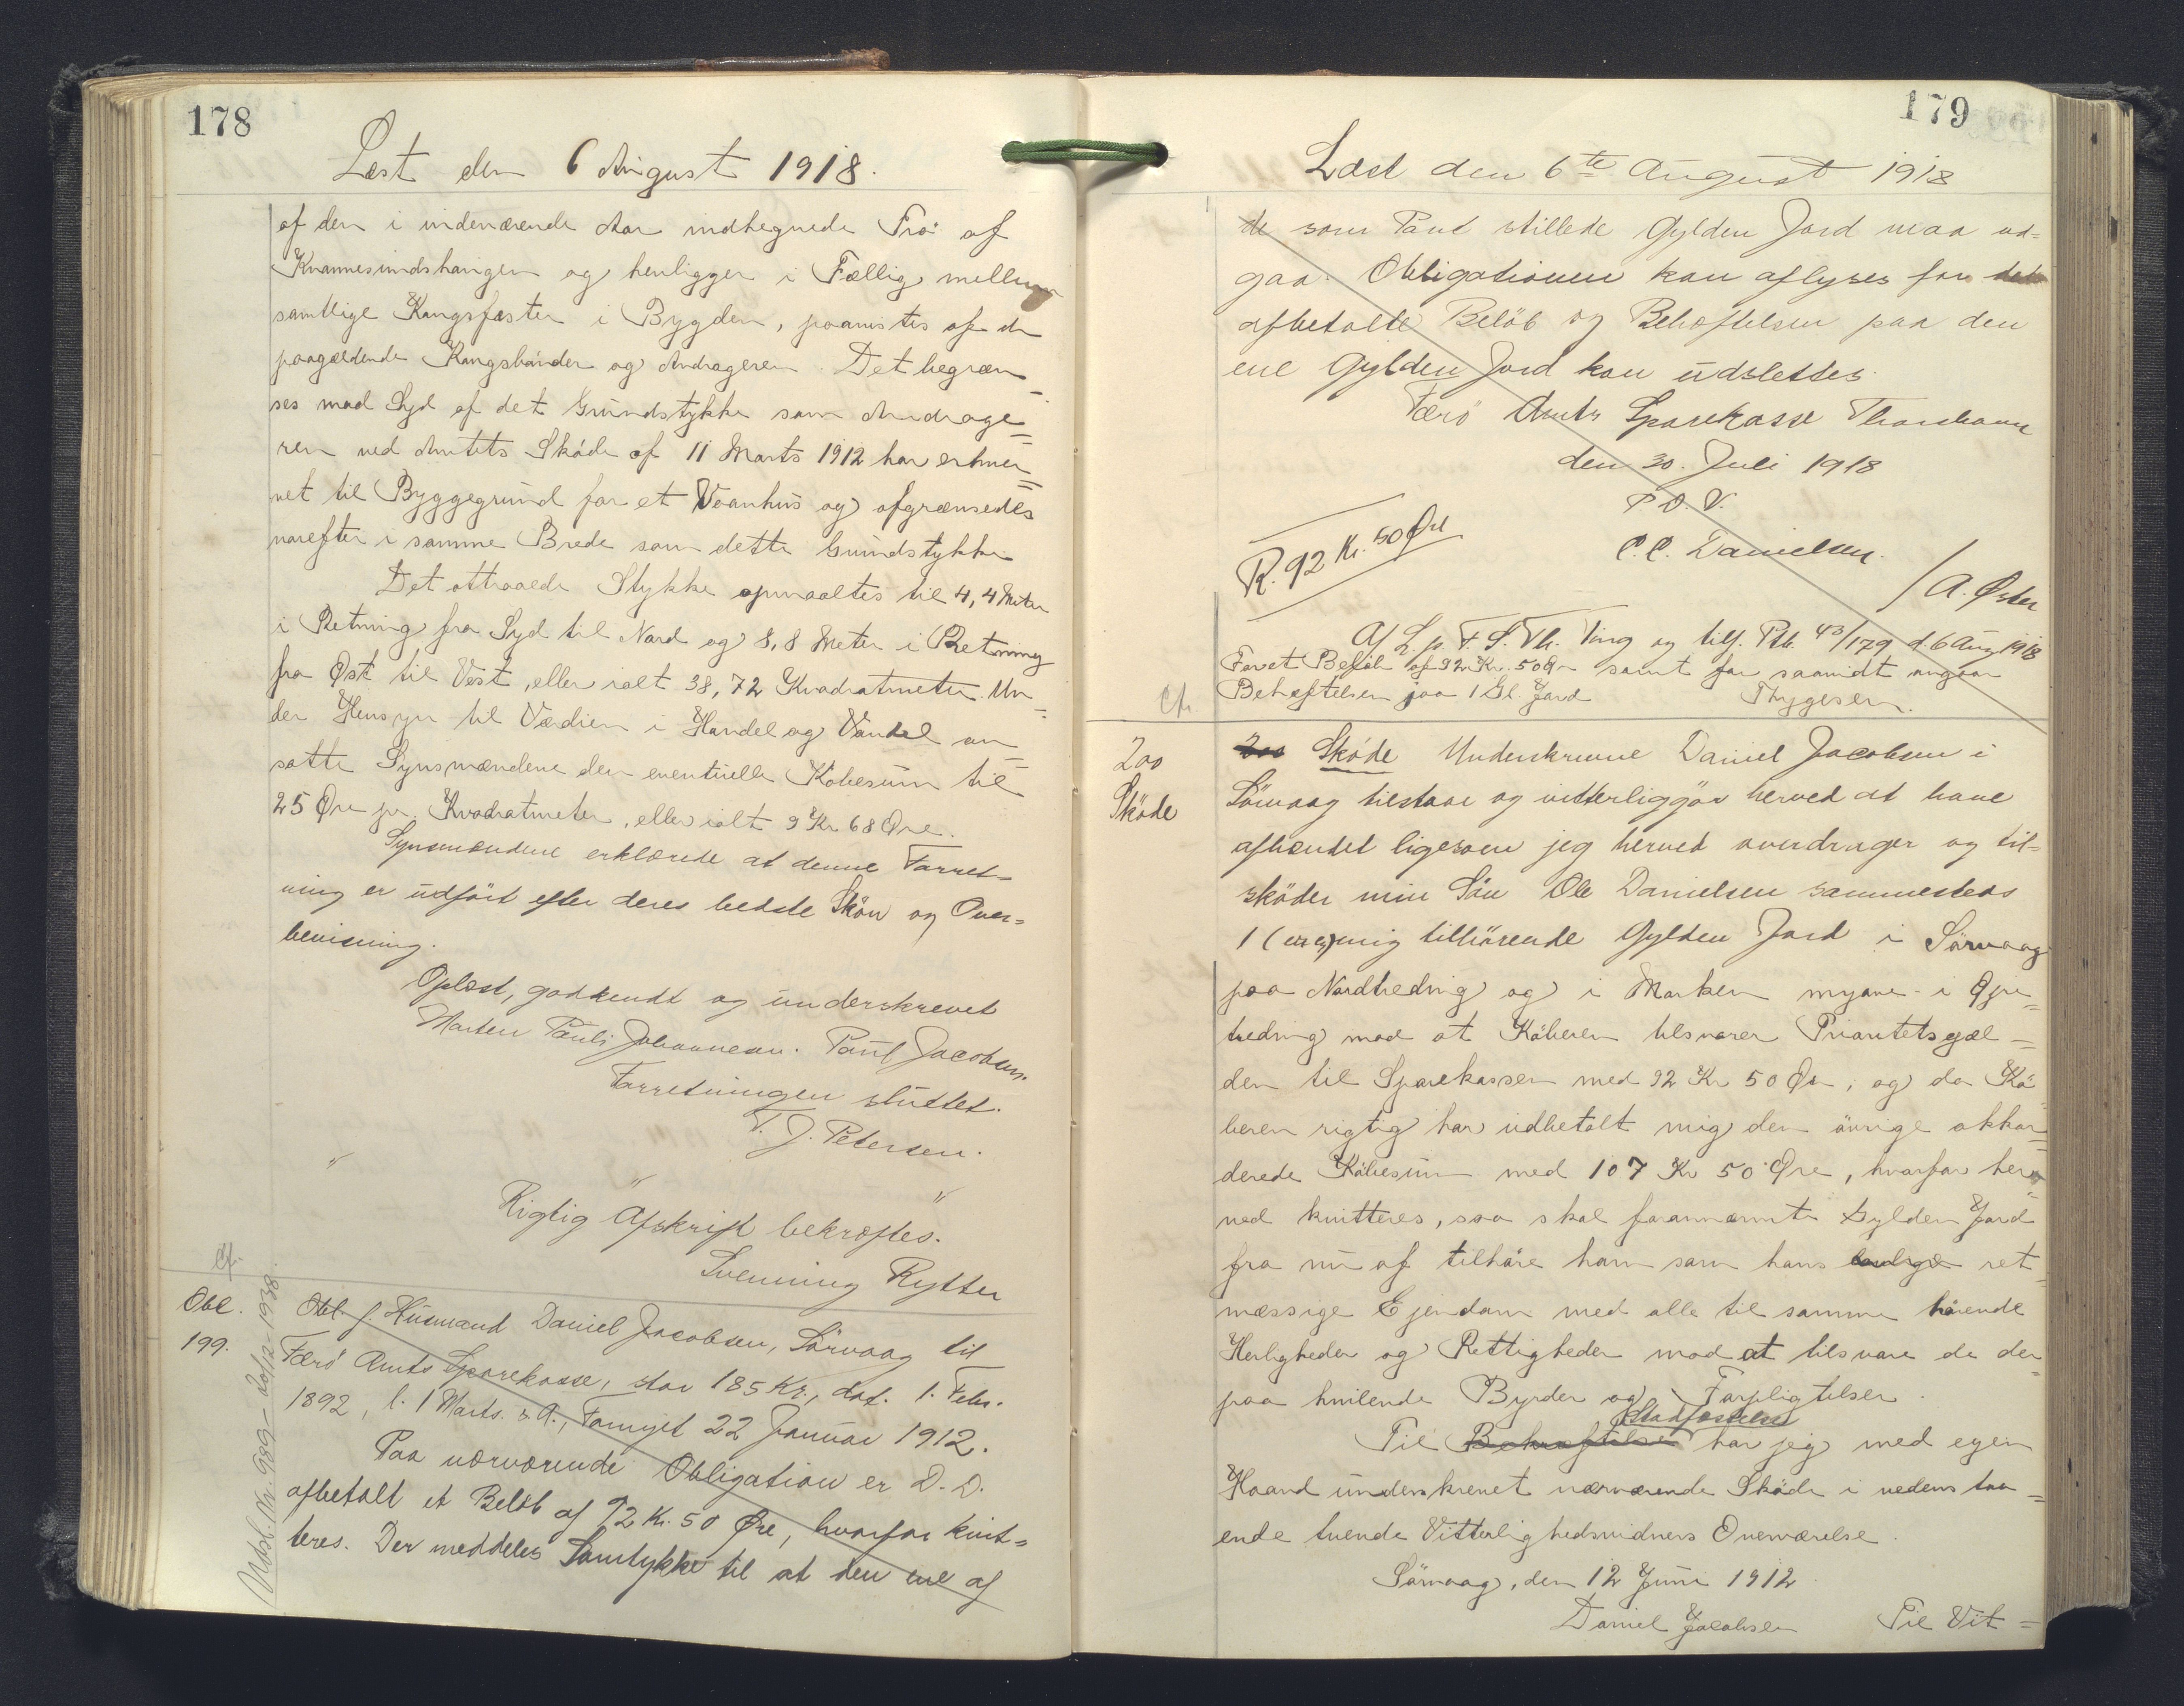 178
Læst den 6 August 1918.
af den i indeværende Aar indhegnede Trø af
Kvannesundshaugen og henligger i Fællig mellem
samtlige Kongsfæster i Bygden, paavistes af de
paagældende Kongsbønder og Andrageren. Det begræn-
ses mod Syd af det Grundstykke som Andrage=
ren ved Amtets Skøde af 11 Marts 1912 har erhver=
vet til Byggegrund for et Vaanhus og afgrænsedes
nærefter i samme Brede som dette Grundstykke
Det attraaede Stykke opmaaltes til 4,4 Meter
i Retning fra Syd til Nord og 8,8 Meter i Retning
fra Øst til Vest, eller ialt 38,72 Kvadratmeter. Un=
der Hensyn til Værdien i Handel og Vandel an=
satte Synsmændene den eventuelle Købesum til
25 Øre pr. Kvadratmeter, eller ialt 9 Kr 68 Øre.
Synsmændene erklærede at denne Forret=
ning er udført efter deres bedste Skøn og Over=
bevisning.
Oplæst, godkendt og underskrevet
Morten Pauli Johannesen. Paul Jacobsen.
Forretningen sluttet.
T. J. Petersen.
" " "
Rigtig Afskrift bekræftes.
Svenning Rytter
Cf.
Obl.
199.
Udsl. Nr. 989 - 20/12 - 1938.
Obl. f. Husmand Daniel Jacobsen, Sörvaag til
Færö Amts Sparekasse, stor 185 Kr., dat. 1. Febr.
1892, l. 1 Marts s. A., Fornyet 22 Januar 1912.
Paa nærværende Obligation er D. D.
afbetalt et Beløb af 92 Kr. 50 Øre, hvorfor kvit=
teres. Der meddeles Samtykke til at den ene af
179
Læst den 6te August 1918
de som Pant stillede Gylden Jord maa ud=
gaa. Obligationen kan aflyses for det
afbetalte Beløb og Behæftelsen paa den
ene Gylden Jord kan udslettes.
Færö Amts Sparekasse Thorshavn
den 30. Juli 1918
P. D. V.
C. C. Danielsen.
/A. Öster
R. 92 Kr. 50 Øre
Af L. p. F. S. Th. Ting og tilf. Ptb. 43/179 d. 6 Aug 1918
For et Beløb af 92 Kr. 50 Ør samt for saavidt angaar
Behæftelsen paa 1 Gl. Jord Thygesen.
Cf.
200
Sköde
200 Sköde Underskrevne Daniel Jacobsen i
Sörvaag tilstaar og vitterliggör herved at have
afhændet ligesom jeg herved overdrager og til=
sköder min Sön Ole Danielsen sammesteds
1 (een) mig tilhörende Gylden Jord i Sörvaag
paa Nordhedrig og i Marken mgane i Øgre=
hedrig mod at Köberen tilsvarer Prioritetsgæl=
den til Sparekassen med 92 Kr 50 Ør, og da Kö=
beren rigtig har udbetalt mig den övrige akkor=
derede Köbesum med 107 Kr 50 Øre, hvorfor her=
ved kvitteres, saa skal forannævnte Gylden Jord
fra nu af tilhöre ham som hans lovlige ret=
mæssige Ejendom med alle til samme hörende
Herligheder og Rettigheder mod at tilsvare de der=
paa hvilende Byrder og Forpligtelser.
Stadfæstelse
Til Bekræftelse har jeg med egen
Haand underskrevet nærværende Sköde i nedenstaa=
ende tvende Vitterlighedsvidners Overværelse.
Sörvaag, den 12 Juni 1912
Daniel Jacobsen Til Vit=